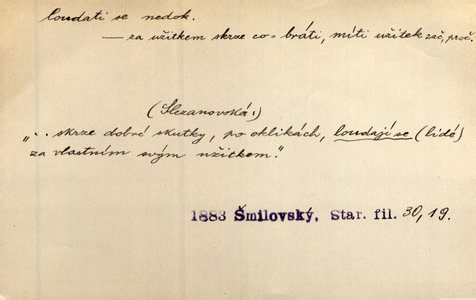 loudati se nedok.
— za užitkem skrze co = bráti, míti užitek zač, proč.
(Slezanovská:)
„.. skrze dobré skutky, po oklikách, loudají se (lidé)
za vlastním svým užitkem."
1883 Šmilovský, Star. fil. 30,19.